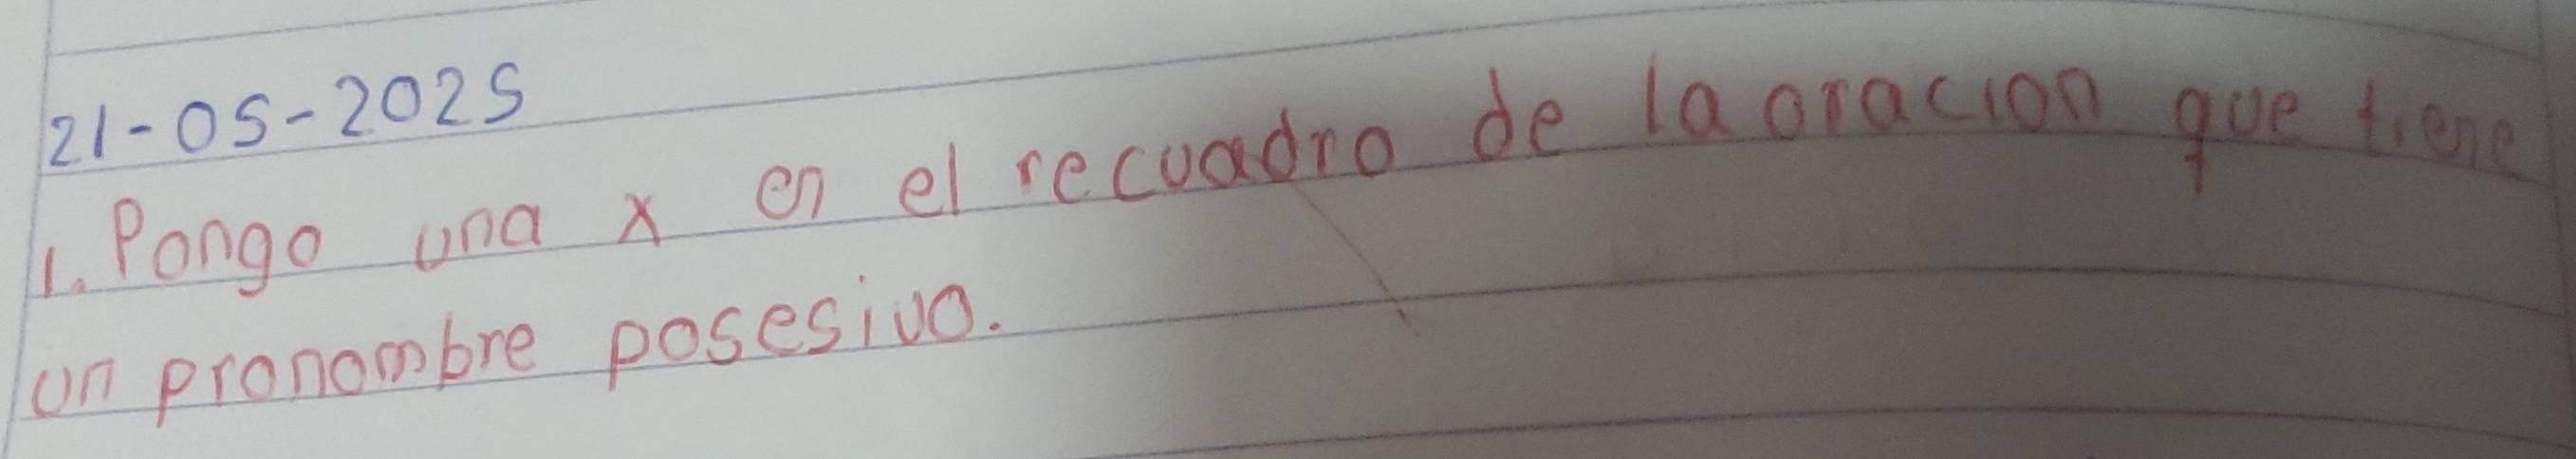 21-05-2025
1. Pongo una x en el recuadro de la oracion que tiene
un pronombre posesivo.